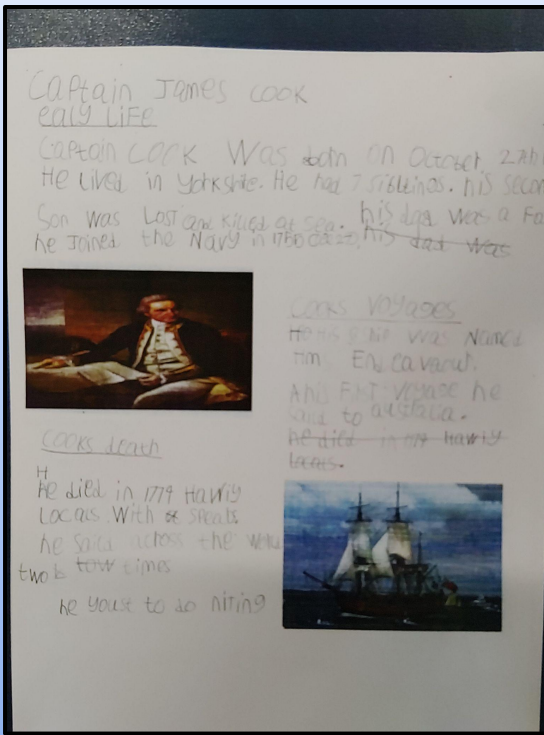 Captain James cook
ealy Life
Captain COOK Was born on October 27th
He lived in Yorkshire. He had 7 sibtines. his secon
Son was Lost and killed at sea. his dad was a Fa
he Joined the Navy in 1750 his dad was
Cooks Voyages
He His was Named
Hm Endeavarut.
his voyage he
said to austalia.
he died in 1779 Hawiy
locals.
Cooks death
H
he died in 1779 Hawiy
Locals With speals
he sails across the
two tow times
he youst to do niting